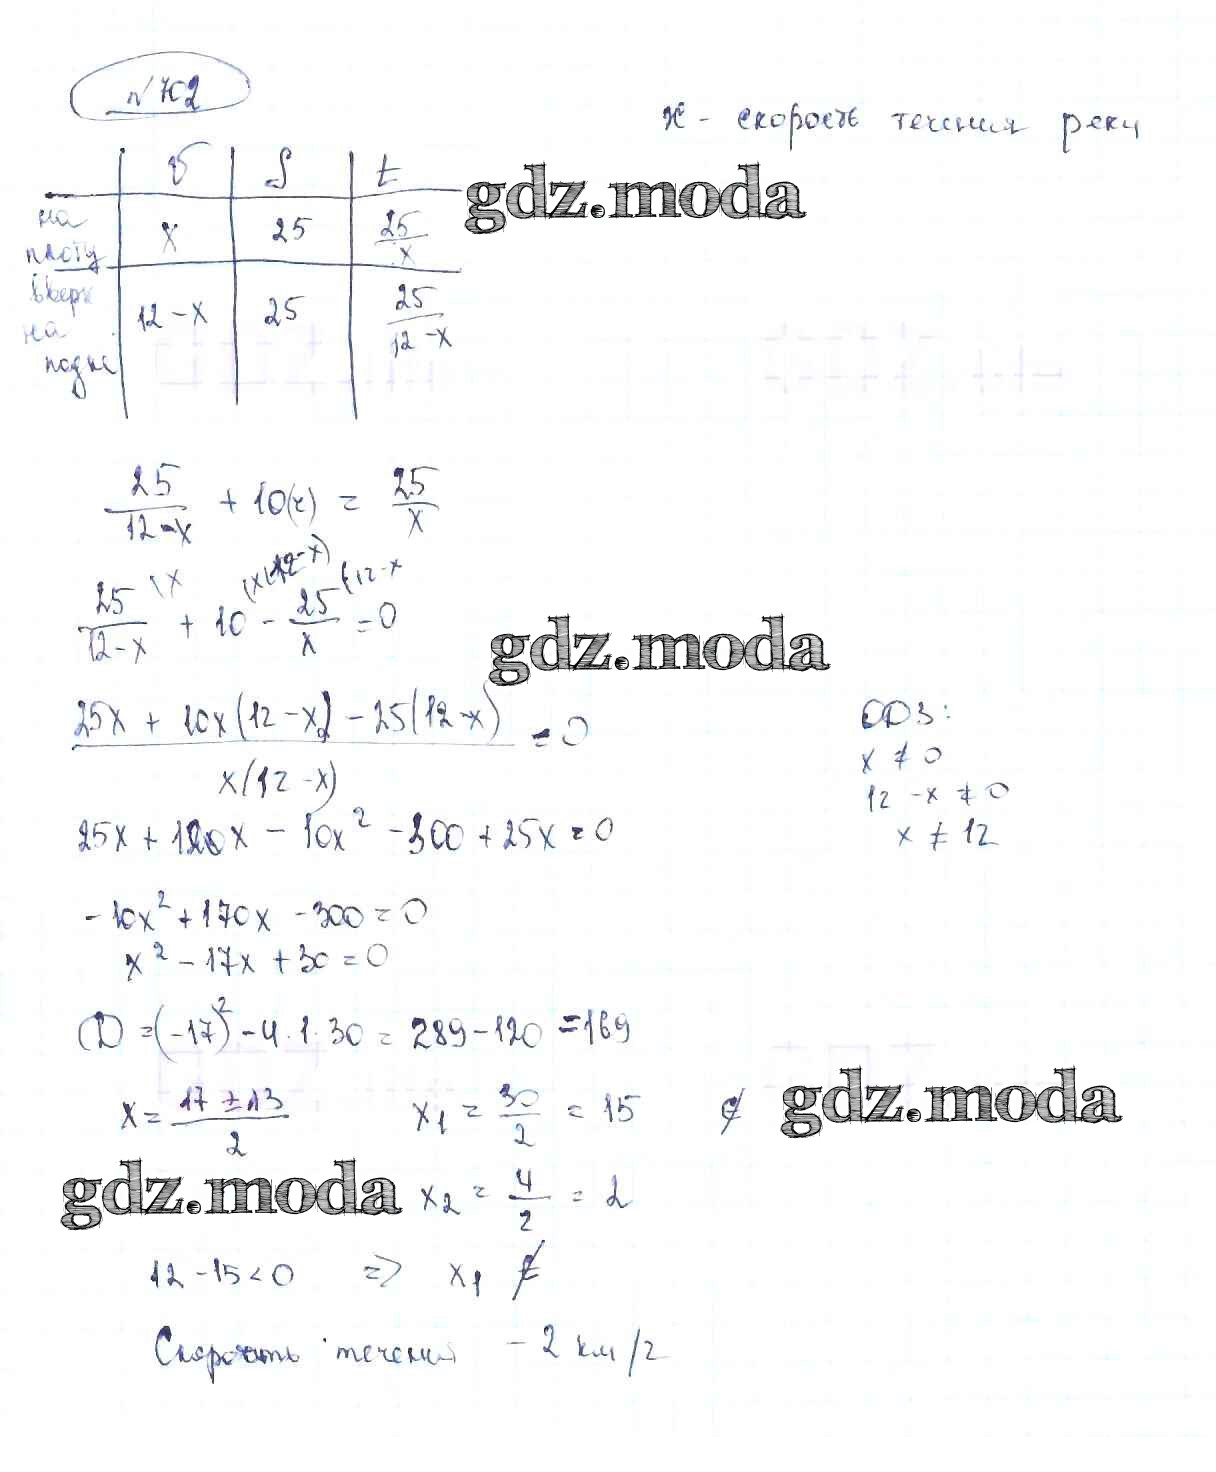 №702
x - скорость течения реки
v S t
на плоту x 25 25/x
вверх на лодке 12-x 25 25/(12-x)
gdz.moda
25/(12-x) + 10(ч) = 25/x
25/(12-x) (x + 10 (x(12-x) - 25/x (12-x = 0
gdz.moda
(25x + 10x(12-x) - 25(12-x))/(x(12-x)) = 0
ОДЗ:
x ≠ 0
12 - x ≠ 0
x ≠ 12
25x + 120x - 10x² - 300 + 25x = 0
-10x² + 170x - 300 = 0
x² - 17x + 30 = 0
D = (-17)² - 4·1·30 = 289 - 120 = 169
x = (17 ± 13)/2 x₁ = 30/2 = 15 ∉
gdz.moda
gdz.moda
x₂ = 4/2 = 2
12 - 15 < 0 => x₁ ∉
Скорость течения - 2 км/ч